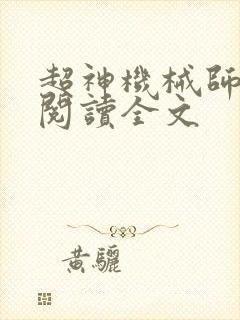 超神機械師
閱讀全文
黃驪